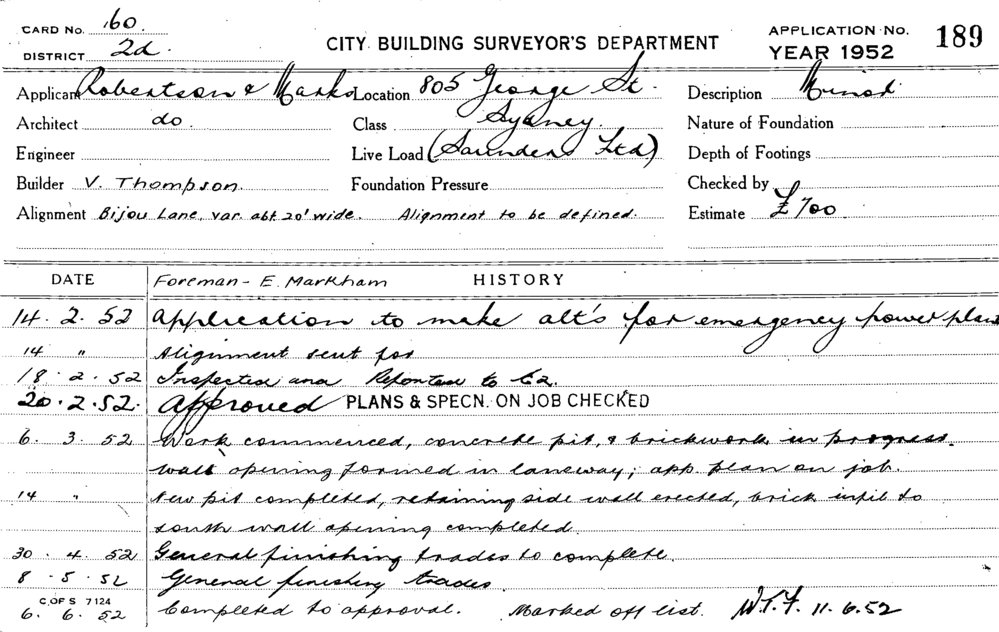 CARD No. 160.
DISTRICT 2d.
CITY BUILDING SURVEYOR'S DEPARTMENT
APPLICATION No. 189
YEAR 1952
Applicant Robertson & Marks Location 805 George St. Description Minor
Architect do. Class Sydney. Nature of Foundation
Engineer Live Load (Saunders Ltd) Depth of Footings
Builder V. Thompson. Foundation Pressure Checked by
Alignment Bijou Lane, var. abt 20' wide. Alignment to be defined. Estimate £700
DATE Foreman - E. Markham HISTORY
14. 2. 52 Application to make alt's for emergency power plant
14 " Alignment sent for
18. 2. 52 Inspected and Reported to
20. 2. 52. Approved PLANS & SPECN. ON JOB CHECKED
6. 3. 52 Work commenced, concrete pit, & brickwork in progress.
wall opening formed in laneway; app. plan on job.
14 " New pit completed, retaining side wall erected, brick infil to
south wall opening completed.
30. 4. 52 General finishing trades to complete.
8. 5. 52 General finishing trades
C. OF S 7124
6. 6. 52 Completed to approval. Marked off list. W.T.F. 11.6.52